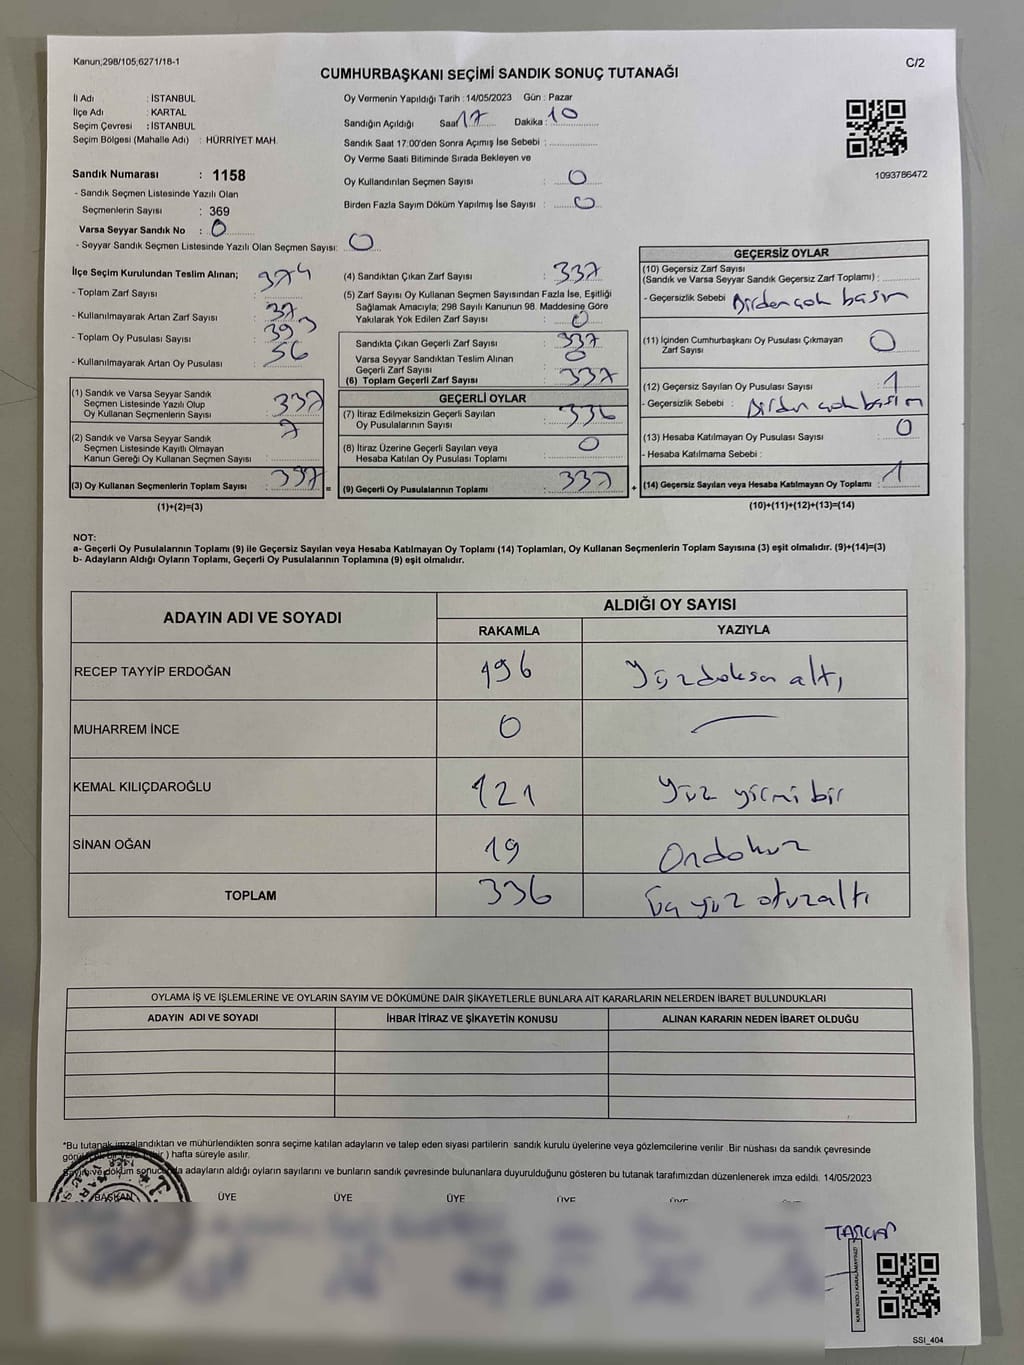 Kanun;298/105,6271/18-1
C/2
CUMHURBAŞKANI SEÇİMİ SANDIK SONUÇ TUTANAĞI
İl Adı : İSTANBUL
İlçe Adı : KARTAL
Seçim Çevresi : İSTANBUL
Seçim Bölgesi (Mahalle Adı) : HÜRRİYET MAH.
Sandık Numarası : 1158
- Sandık Seçmen Listesinde Yazılı Olan
Seçmenlerin Sayısı : 369
Varsa Seyyar Sandık No : 0
- Seyyar Sandık Seçmen Listesinde Yazılı Olan Seçmen Sayısı: 0
Oy Vermenin Yapıldığı Tarih : 14/05/2023 Gün : Pazar
Sandığın Açıldığı Saat 17 Dakika : 10
Sandık Saat 17:00'den Sonra Açımış İse Sebebi :
Oy Verme Saati Bitiminde Sırada Bekleyen ve
Oy Kullandırılan Seçmen Sayısı : 0
Birden Fazla Sayım Döküm Yapılmış İse Sayısı : 0
1093786472
İlçe Seçim Kurulundan Teslim Alınan;
- Toplam Zarf Sayısı : 374
- Kullanılmayarak Artan Zarf Sayısı : 37
- Toplam Oy Pusulası Sayısı : 393
- Kullanılmayarak Artan Oy Pusulası : 56
(1) Sandık ve Varsa Seyyar Sandık
Seçmen Listesinde Yazılı Olup
Oy Kullanan Seçmenlerin Sayısı : 337
(2) Sandık ve Varsa Seyyar Sandık
Seçmen Listesinde Kayıtlı Olmayan
Kanun Gereği Oy Kullanan Seçmen Sayısı :
(3) Oy Kullanan Seçmenlerin Toplam Sayısı : 337 =
(1)+(2)=(3)
(4) Sandıktan Çıkan Zarf Sayısı : 337
(5) Zarf Sayısı Oy Kullanan Seçmen Sayısından Fazla İse, Eşitliği
Sağlamak Amacıyla; 298 Sayılı Kanunun 98. Maddesine Göre
Yakılarak Yok Edilen Zarf Sayısı : 0
Sandıkta Çıkan Geçerli Zarf Sayısı : 337
Varsa Seyyar Sandıktan Teslim Alınan
Geçerli Zarf Sayısı : 0
(6) Toplam Geçerli Zarf Sayısı : 337
GEÇERLİ OYLAR
(7) İtiraz Edilmeksizin Geçerli Sayılan
Oy Pusulalarının Sayısı : 336
(8) İtiraz Üzerine Geçerli Sayılan veya
Hesaba Katılan Oy Pusulası Toplamı : 0
(9) Geçerli Oy Pusulalarının Toplamı : 337 +
GEÇERSİZ OYLAR
(10) Geçersiz Zarf Sayısı
(Sandık ve Varsa Seyyar Sandık Geçersiz Zarf Toplamı) :
- Geçersizlik Sebebi : Birden çok basım
(11) İçinden Cumhurbaşkanı Oy Pusulası Çıkmayan
Zarf Sayısı : 0
(12) Geçersiz Sayılan Oy Pusulası Sayısı : 1
- Geçersizlik Sebebi : Birden çok basım
(13) Hesaba Katılmayan Oy Pusulası Sayısı : 0
- Hesaba Katılmama Sebebi :
(14) Geçersiz Sayılan veya Hesaba Katılmayan Oy Toplamı : 1
(10)+(11)+(12)+(13)=(14)
NOT:
a- Geçerli Oy Pusulalarının Toplamı (9) ile Geçersiz Sayılan veya Hesaba Katılmayan Oy Toplamı (14) Toplamları, Oy Kullanan Seçmenlerin Toplam Sayısına (3) eşit olmalıdır. (9)+(14)=(3)
b- Adayların Aldığı Oyların Toplamı, Geçerli Oy Pusulalarının Toplamına (9) eşit olmalıdır.
ADAYIN ADI VE SOYADI ALDIĞI OY SAYISI
RAKAMLA YAZIYLA
RECEP TAYYİP ERDOĞAN 196 Yüzdoksan altı
MUHARREM İNCE 0 —
KEMAL KILIÇDAROĞLU 121 Yüz yirmi bir
SİNAN OĞAN 19 Ondokuz
TOPLAM 336 Üç yüz otuzaltı
OYLAMA İŞ VE İŞLEMLERİNE VE OYLARIN SAYIM VE DÖKÜMÜNE DAİR ŞİKAYETLERLE BUNLARA AİT KARARLARIN NELERDEN İBARET BULUNDUKLARI
ADAYIN ADI VE SOYADI İHBAR İTİRAZ VE ŞİKAYETİN KONUSU ALINAN KARARIN NEDEN İBARET OLDUĞU
*Bu tutanak imzalandıktan ve mühürlendikten sonra seçime katılan adayların ve talep eden siyasi partilerin sandık kurulu üyelerine veya gözlemcilerine verilir. Bir nüshası da sandık çevresinde
bir ) hafta süreyle asılır.
Sayım ve döküm sonucunda adayların aldığı oyların sayılarını ve bunların sandık çevresinde bulunanlara duyurulduğunu gösteren bu tutanak tarafımızdan düzenlenerek imza edildi. 14/05/2023
BAŞKAN ÜYE ÜYE ÜYE ÜYE ÜYE ÜYE
KARE KODU KARALAMAYINIZ!
SSİ_404